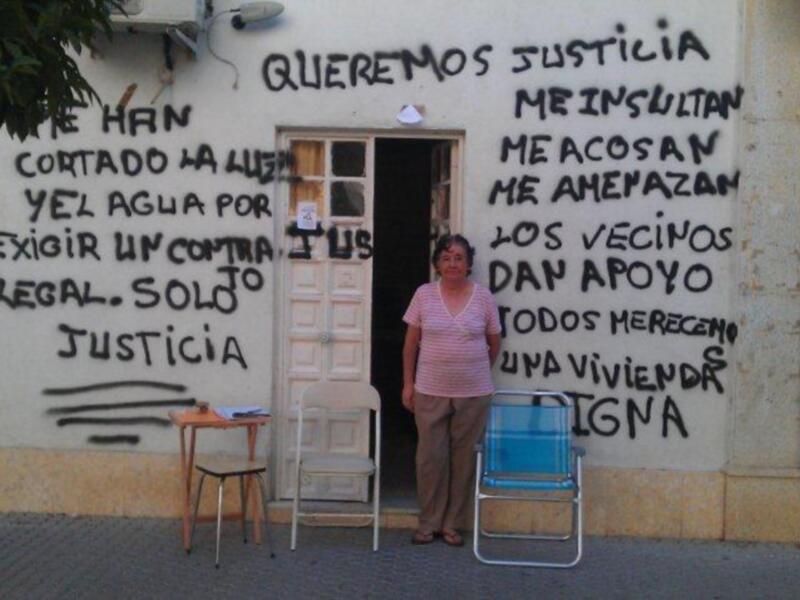 QUEREMOS JUSTICIA
ME HAN
CORTADO LA LUZ
Y EL AGUA POR
EXIGIR UN CONTRA JUS
TO
LEGAL. SOLO
JUSTICIA
ME INSULTAN
ME ACOSAN
ME AMENAZAN
LOS VECINOS
DAN APOYO
TODOS MERECEMO
S
UNA VIVIENDA
DIGNA